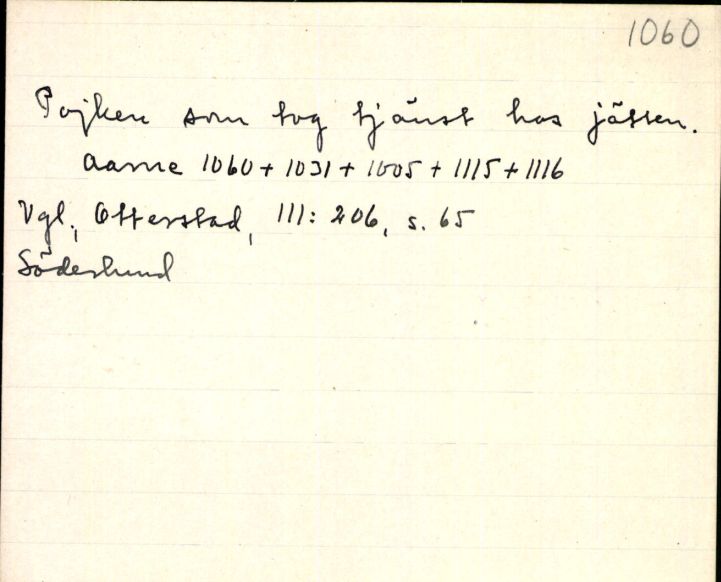 1060
Pojken som tog tjänst hos jätten.
Aarne 1060 + 1031 + 1005 + 1115 + 1116
Vgl., Otterstad, III: 206, s. 65
Söderlund